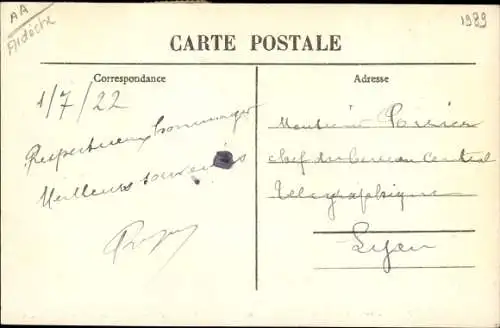 AA
Ardèche
1989
CARTE POSTALE
Correspondance
Adresse
1/7/22
Respectueux hommages
Meilleurs souvenirs
Monsieur
chef du bureau Central
Télégraphique
Lyon